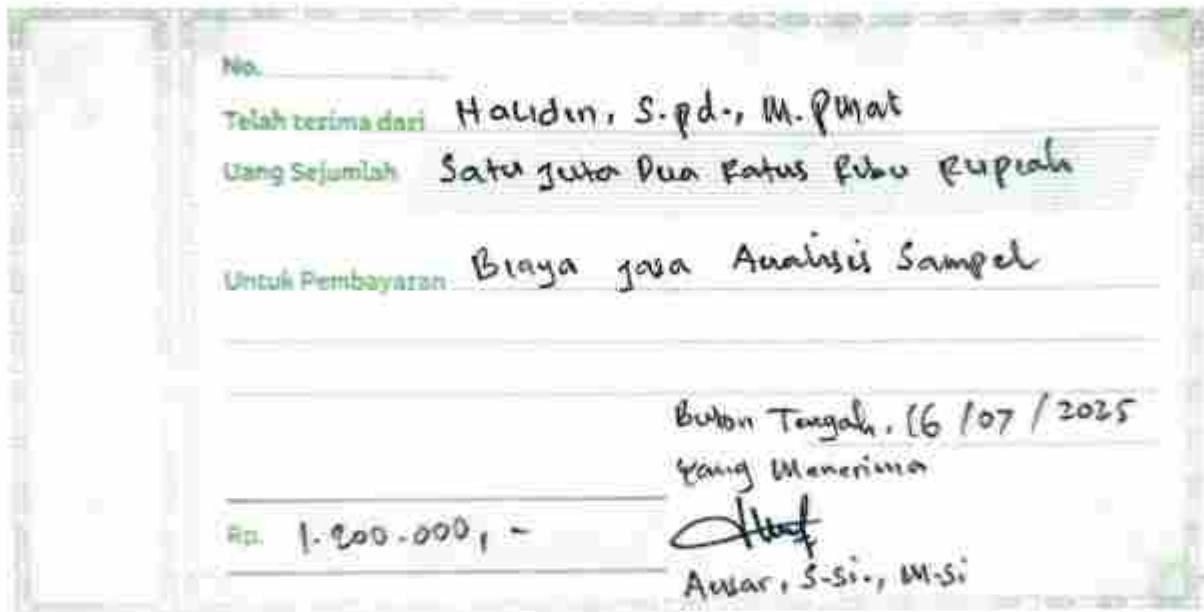 No.
Telah terima dari Halidin, S.pd., M.Pmat
Uang Sejumlah Satu Juta Dua Ratus Ribu Rupiah
Untuk Pembayaran Biaya jasa Analisis Sampel
Buton Tengah, 16 / 07 / 2025
Yang Menerima
Rp. 1.200.000, -
Ansar, S.Si., M.Si